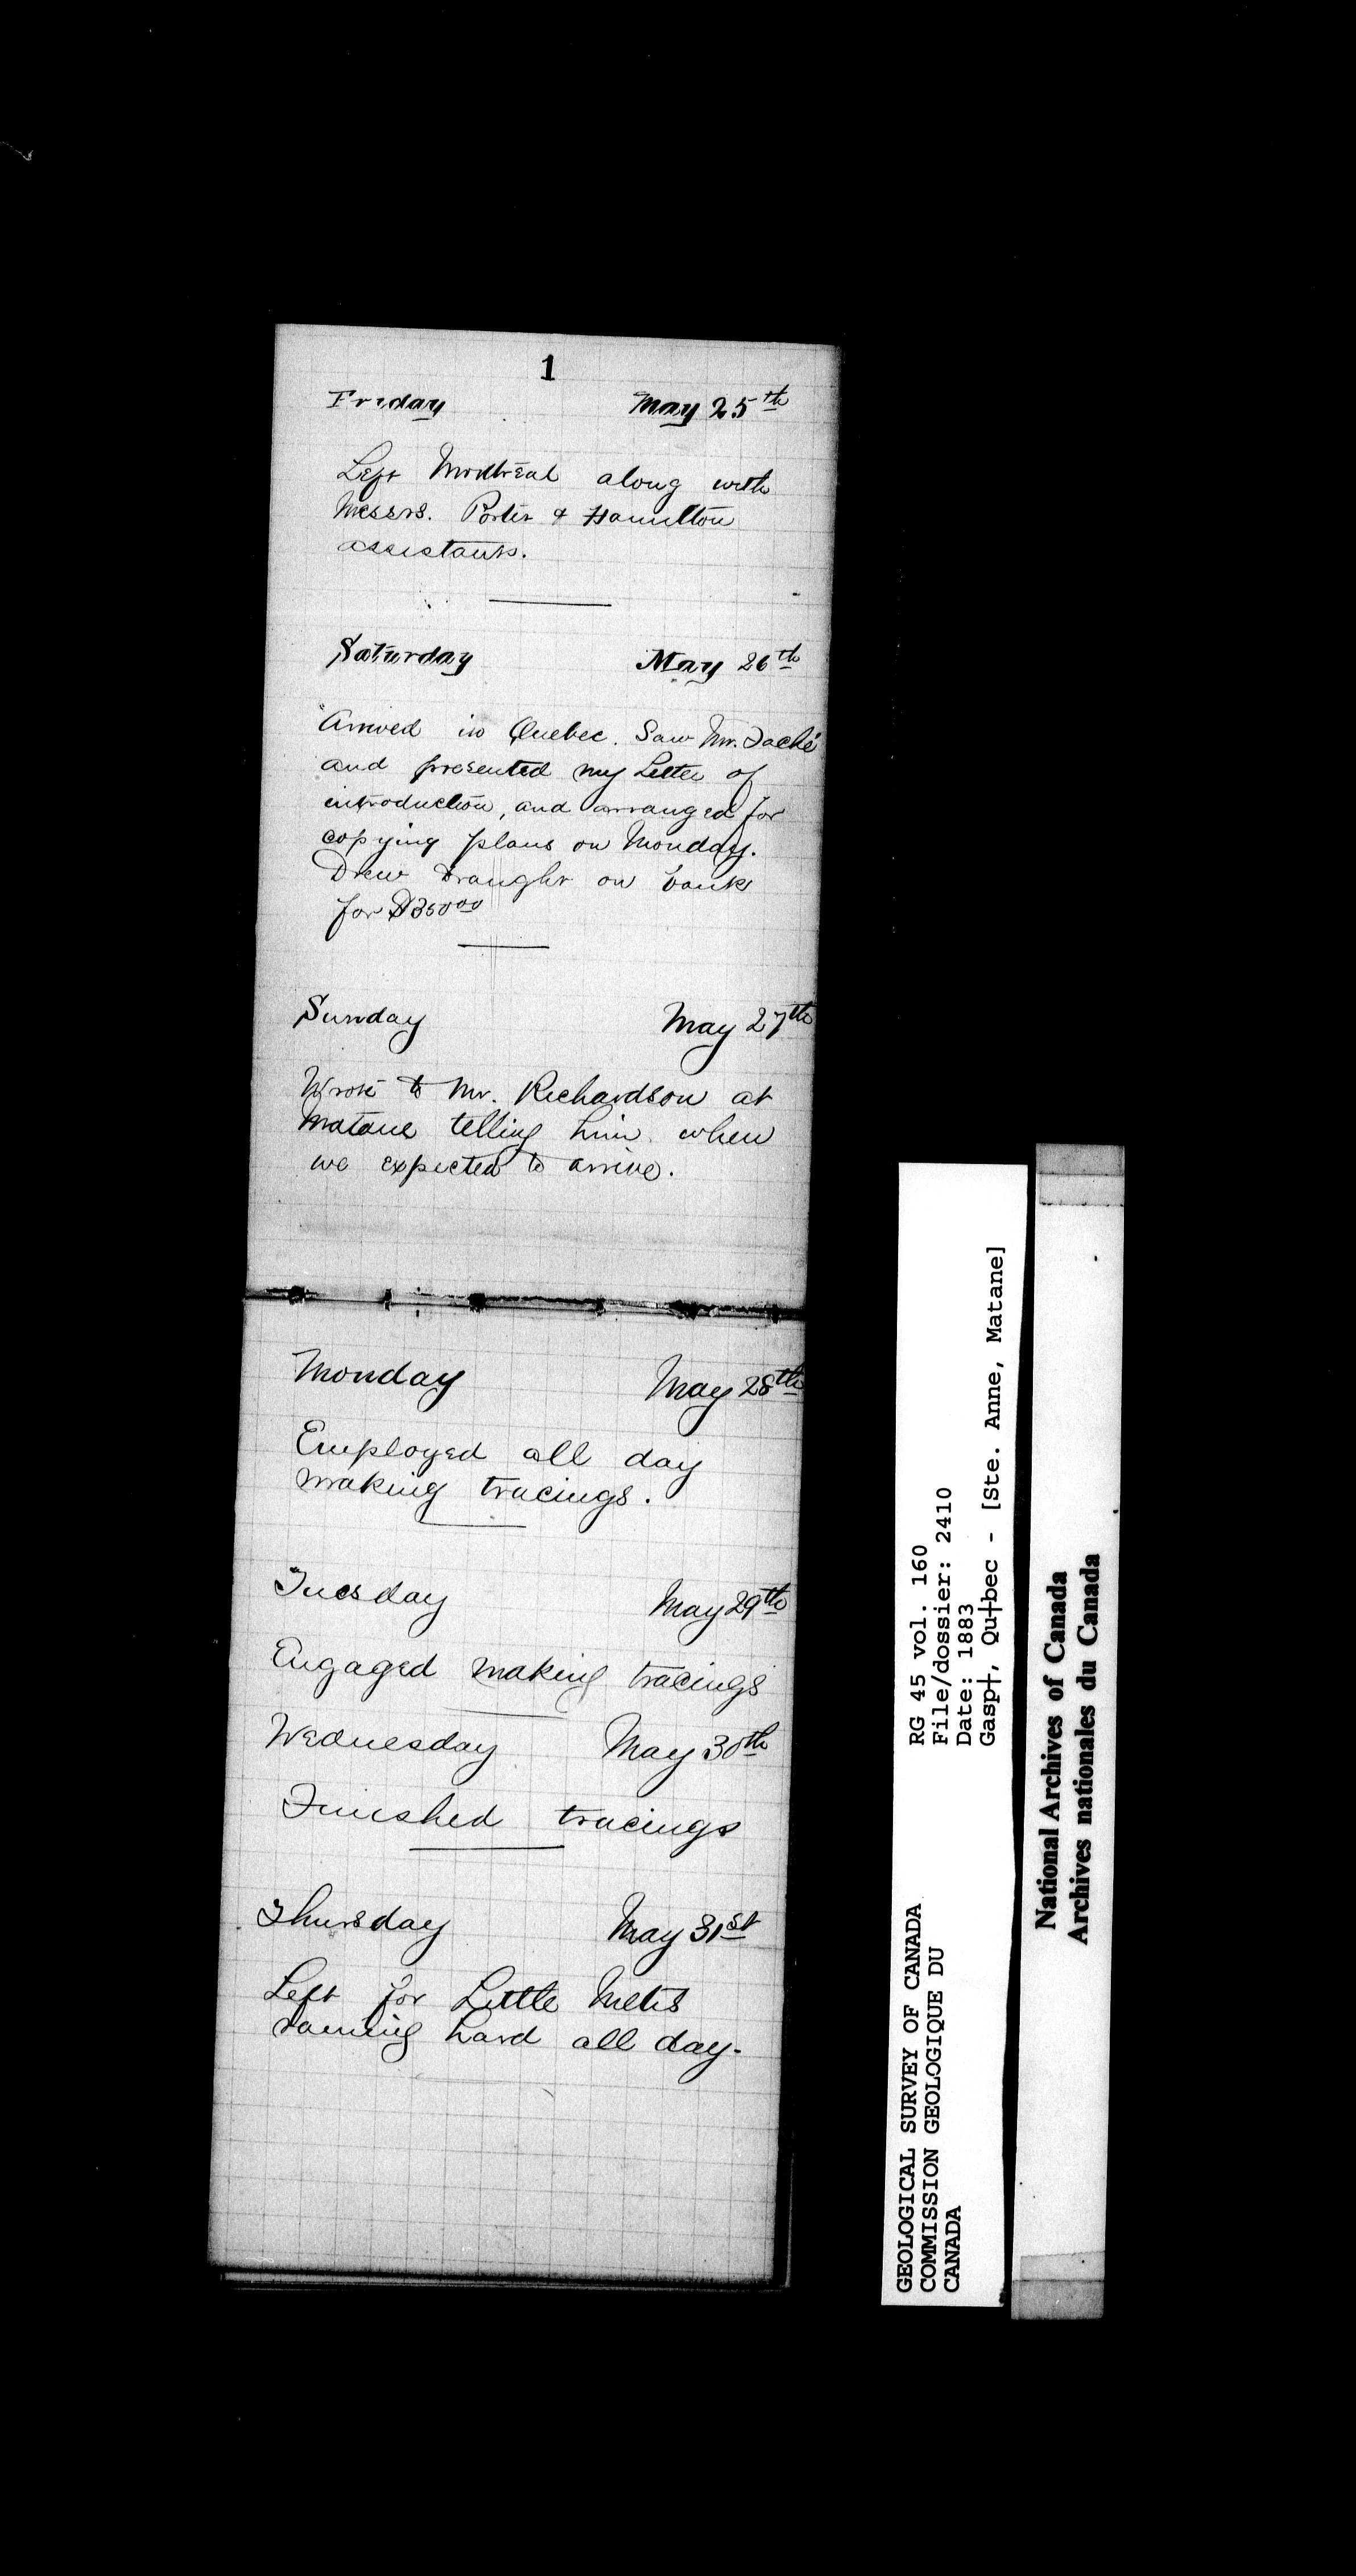 1
Friday May 25th
Left Montreal along with
Messrs. Porter & Hamilton
assistants.
Saturday May 26th
Arrived in Quebec. Saw Mr. Taché
and presented my Letter of
introduction, and arranged for
copying plans on Monday.
Drew Draught on bank
for $350 00
Sunday May 27th
Wrote to Mr. Richardson at
Matane telling him when
we expected to arrive.
Monday May 28th
Employed all day
making tracings.
Tuesday May 29th
Engaged making tracings
Wednesday May 30th
Finished tracings
Thursday May 31st
Left for Little Metis
raining hard all day.
GEOLOGICAL SURVEY OF CANADA
COMMISSION GEOLOGIQUE DU
CANADA
RG 45 vol. 160
File/dossier: 2410
Date: 1883
Gasp†, Qu†bec - [Ste. Anne, Matane]
National Archives of Canada
Archives nationales du Canada